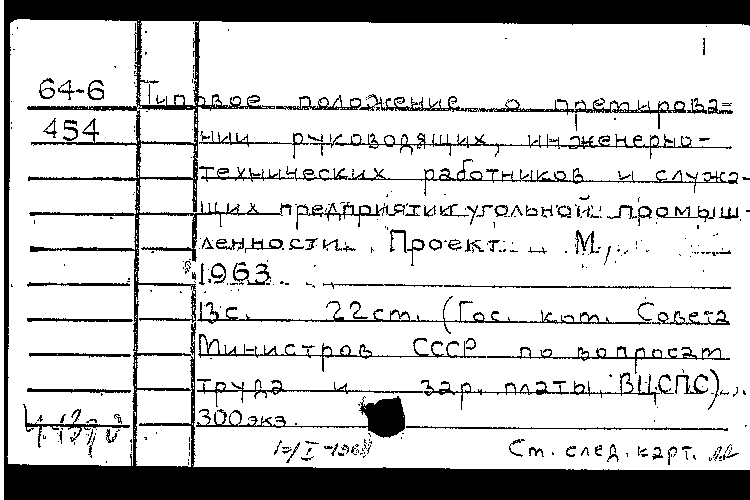 1
64-6 Типовое положение о премирова-
454 нии руководящих, инженерно-
технических работников и служа-
щих предприятий угольной промыш-
ленности. Проект. М.,
1963.
13с. 22см. (Гос. ком. Совета
Министров СССР по вопросам
труда и зар. платы, ВЦСПС).
300экз.
См. след. карт.